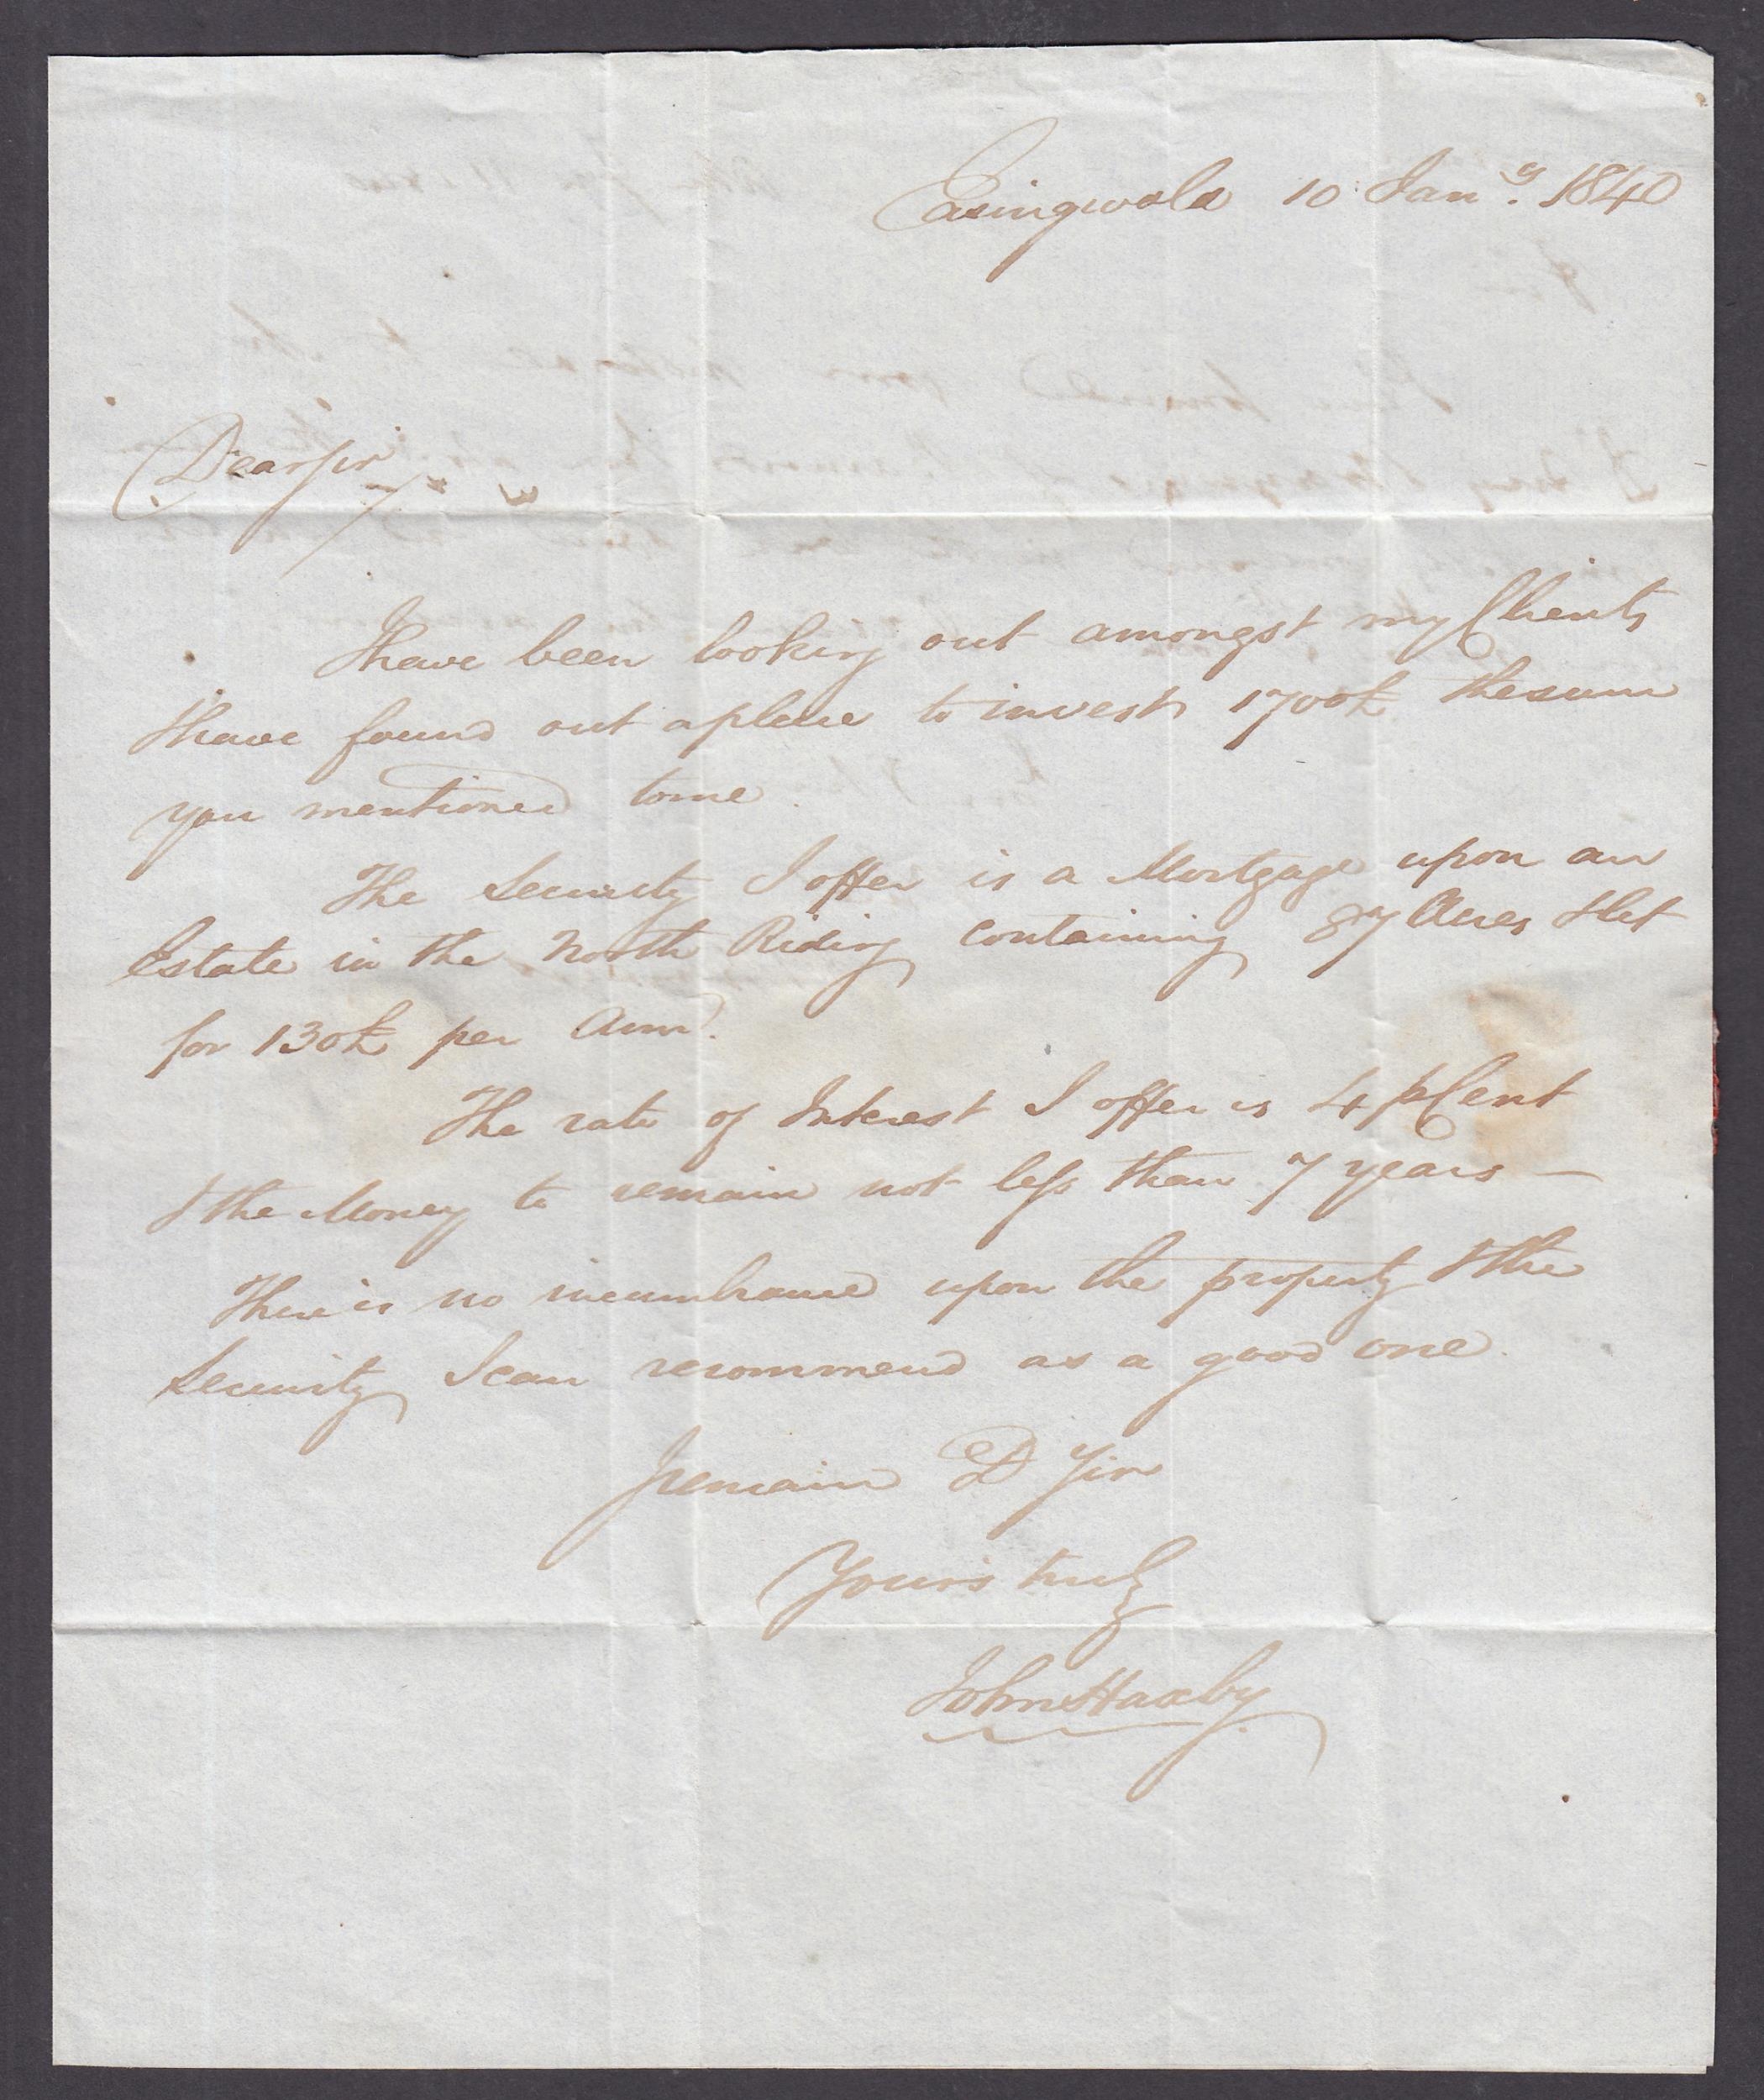 Easingwold 10 Jany. 1840
Dear Sir
I have been looking out amongst my Clients
I have found out a place to invest 1700£ the sum
you mentioned to me.
The Security I offer is a Mortgage upon an
Estate in the North Riding containing 87 Acres & let
for 130£ per Annm.
The rate of Interest I offer is 4 p Cent
& the Money to remain not less than 7 years —
There is no incumbrance upon the property & the
security I can recommend as a good one.
I remain D Sir
Yours truly
John Haxby